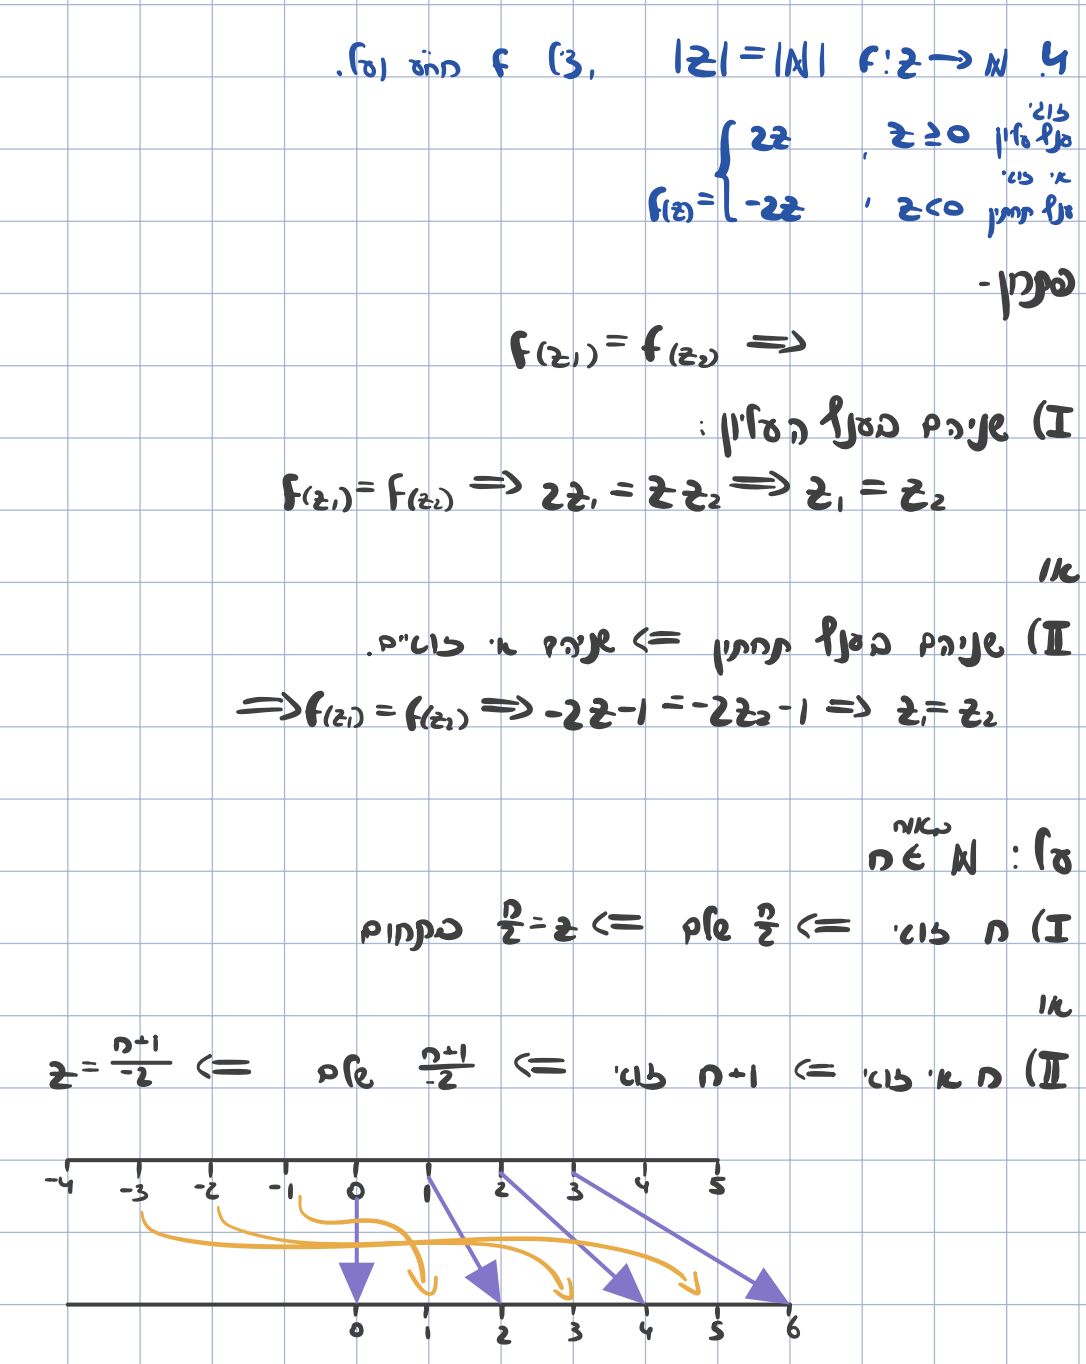 4. f:Z→N |Z|=|N| ,(3 f חח"ע ועל.
f(z)={ 2z , z≥0 זוגי ענף עליון
-2z , z<0 אי זוגי ענף תחתון
פתרון-
f(z₁) = f(z₂) ⟹
I) שניהם בענף העליון:
f(z₁) = f(z₂) ⟹ 2z₁ = 2z₂ ⟹ z₁ = z₂
או
II) שניהם בענף תחתון <= שניהם אי זוגיים.
⟹ f(z₁) = f(z₂) ⟹ -2z-1 = -2z₂-1 ⟹ z₁ = z₂
על: n ∈ N
I) n זוגי <= n/2 שלם <= z = n/2 בתחום
או
II) n אי זוגי <= n+1 זוגי <= (n+1)/-2 שלם <= z = (n+1)/-2
-4 -3 -2 -1 0 1 2 3 4 5
0 1 2 3 4 5 6